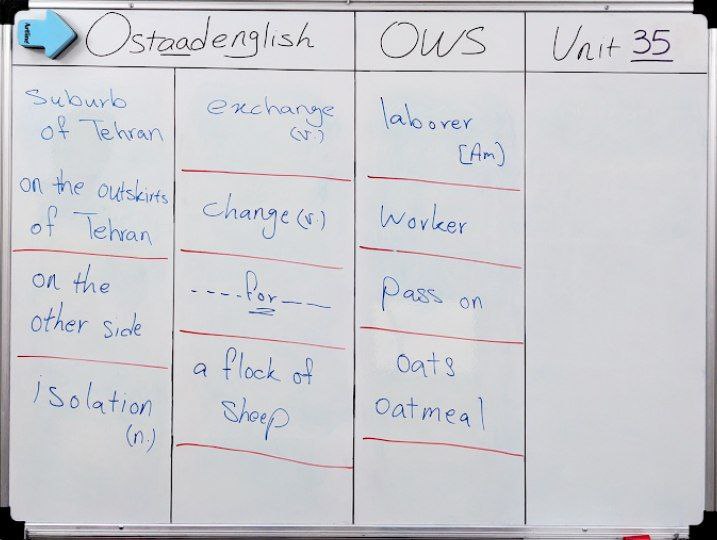 Ostaadenglish OWS Unit 35
suburb
of Tehran
on the outskirts
of Tehran
on the
other side
isolation
(n.)
exchange
(v.)
change (v.)
----for----
a flock of
sheep
laborer
[Am)
worker
pass on
oats
oatmeal